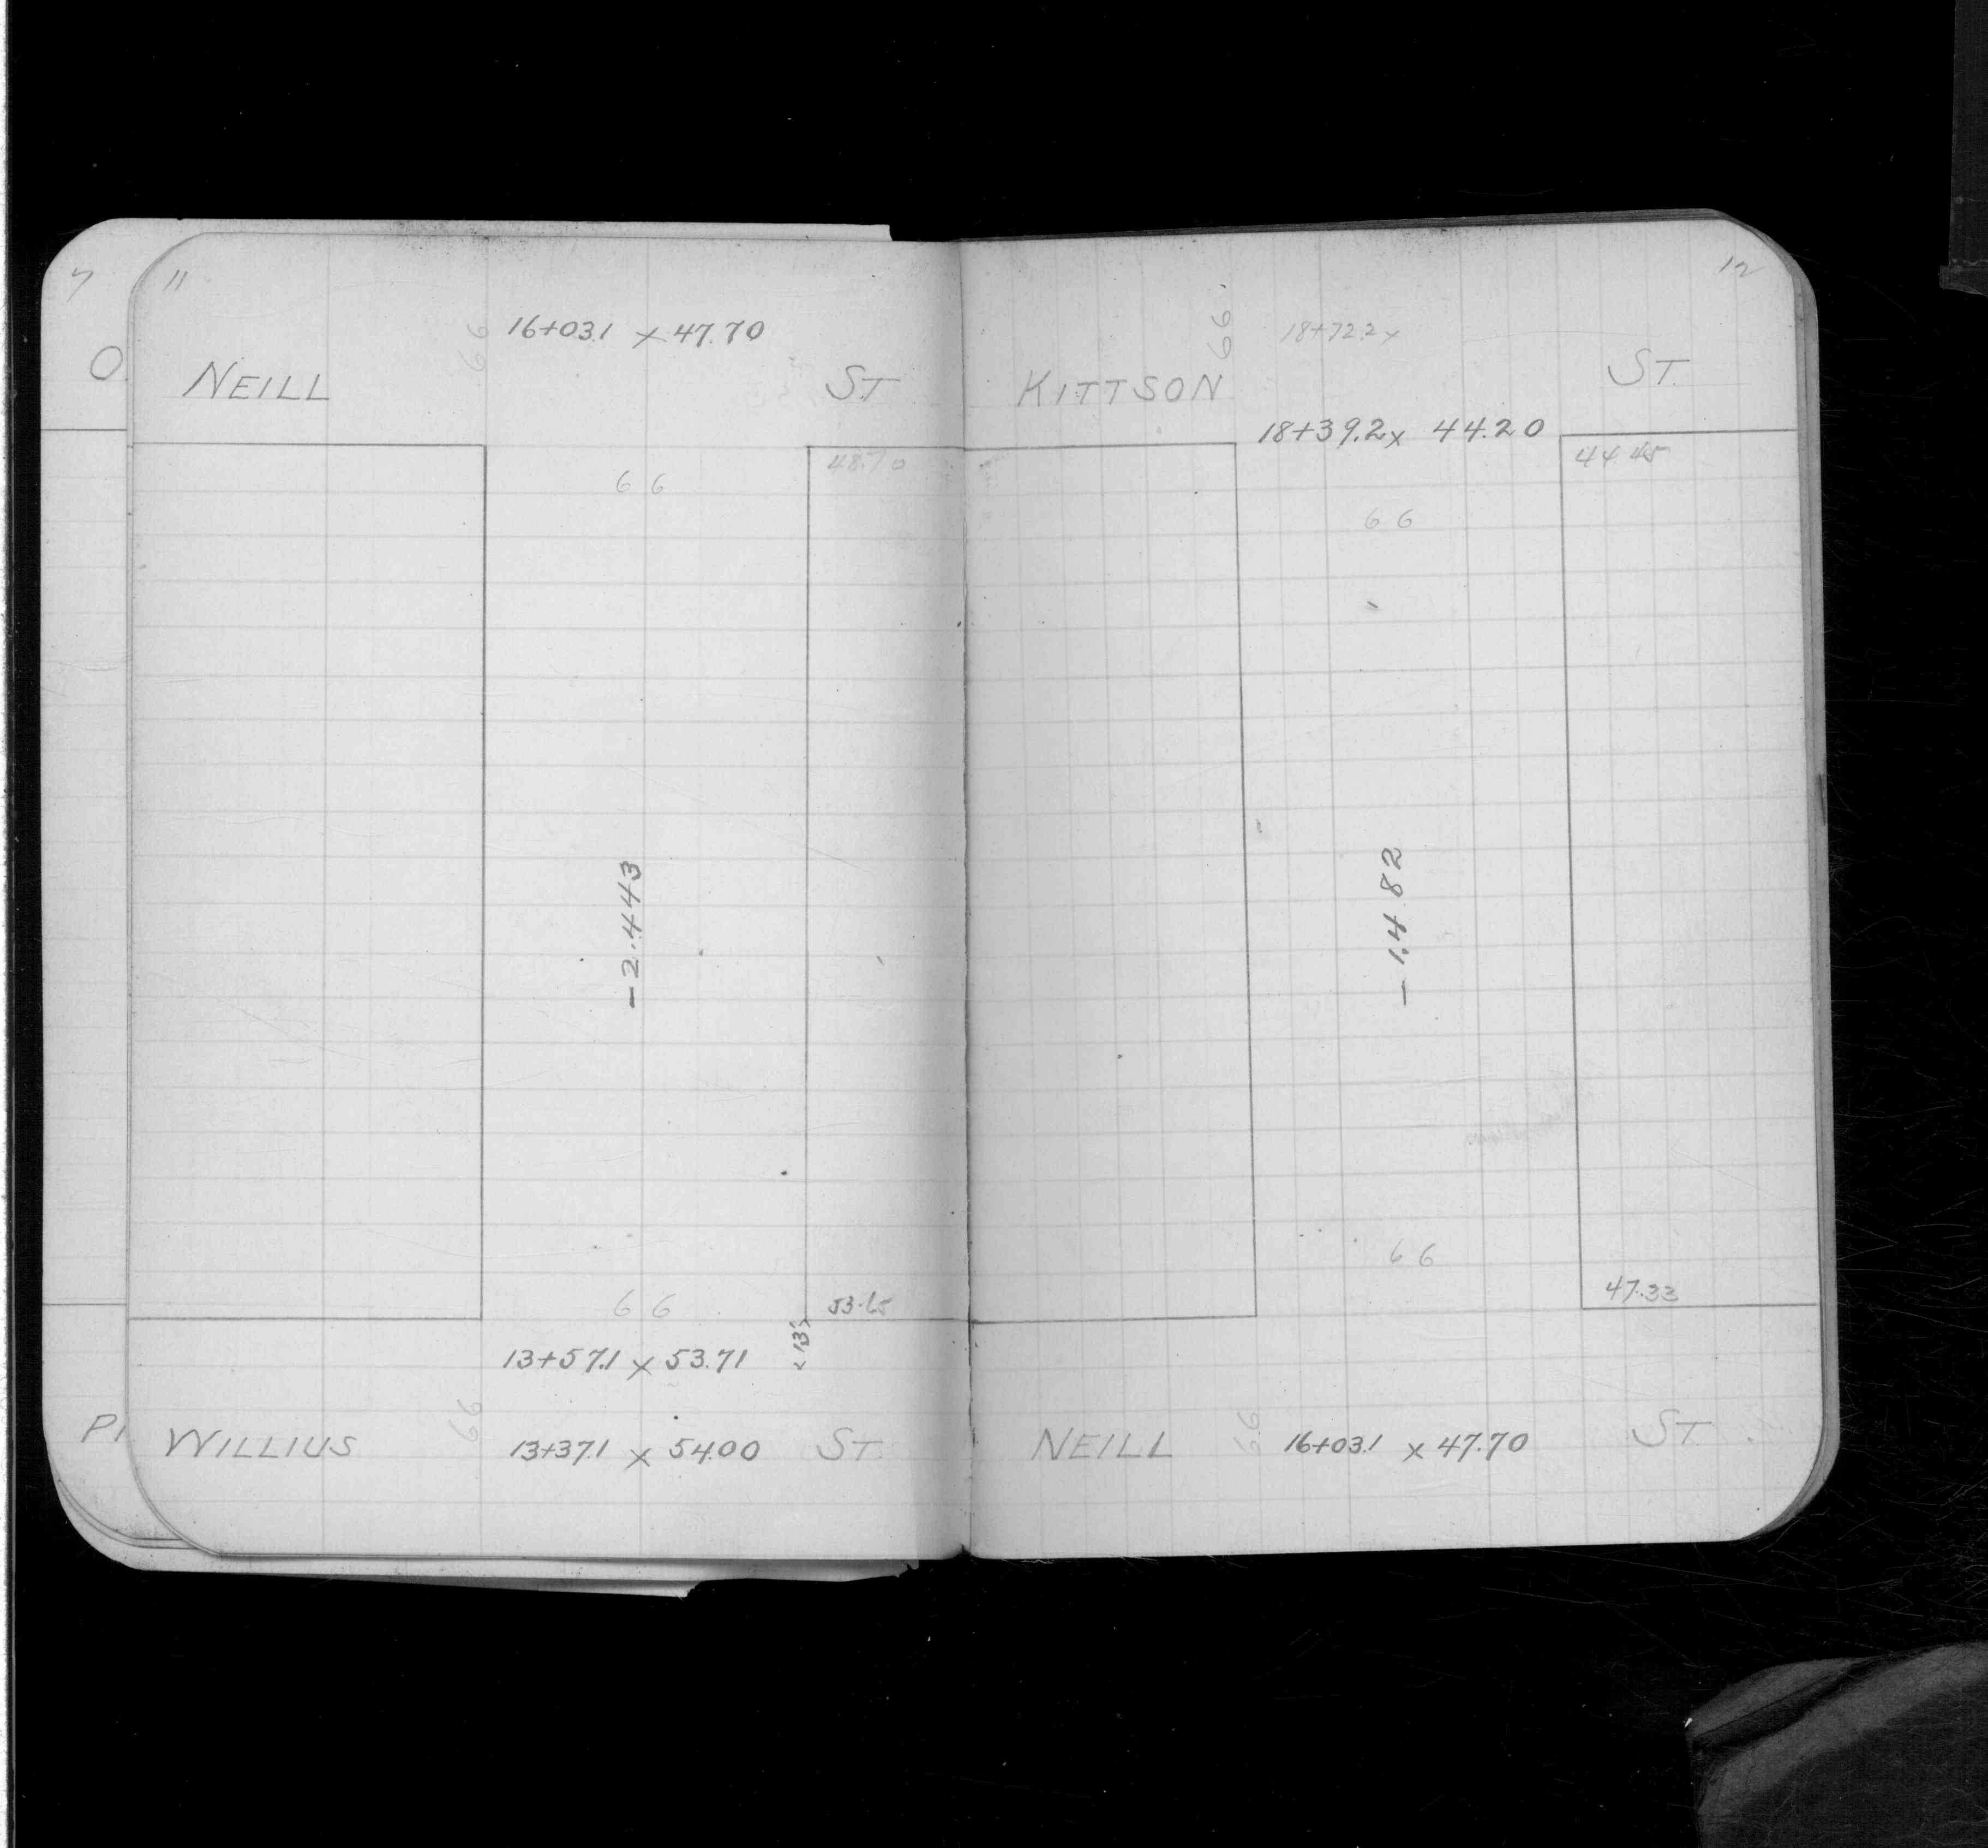 7
O
PI
11
66
16+03.1 x 47.70
NEILL ST
66
48.70
-2.443
66
53.65
<13>
13+57.1 x 53.71
66
WILLIUS 13+37.1 x 54.00 ST.
12
66
18+72.2 x
KITTSON ST.
18+39.2 x 44.20
44.45
66
-1.482
66
47.33
66
NEILL 16+03.1 x 47.70 ST.